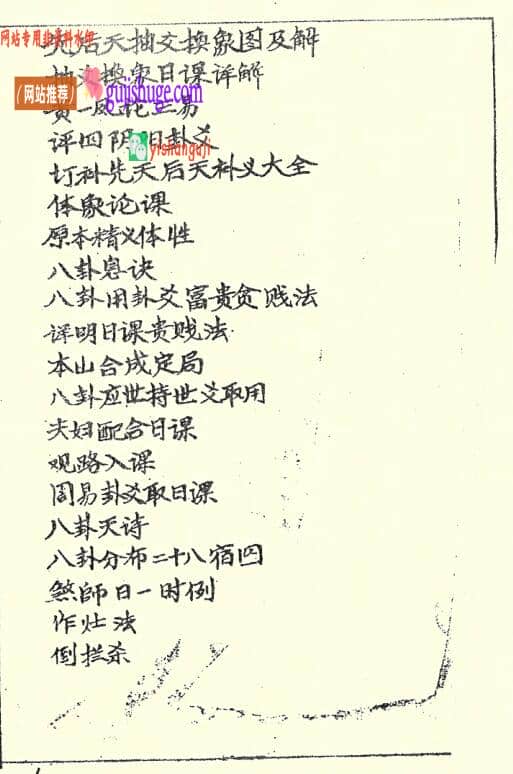 网站专用非资料水印
先后天抽爻换象图及解
抽爻换象日课详解
(网站推荐)
guishuge.com
黄一凤论三易
评四阴阳卦爻
yishanguji
订科先天后天科义大全
体象论课
原本精义体性
八卦总诀
八卦用卦爻富贵贫贱法
详明日课贵贱法
本山合成定局
八卦应世持世爻取用
夫妇配合日课
观路入课
周易卦爻取日课
八卦天诗
八卦分布二十八宿四
煞師日一时例
作灶法
倒拦杀